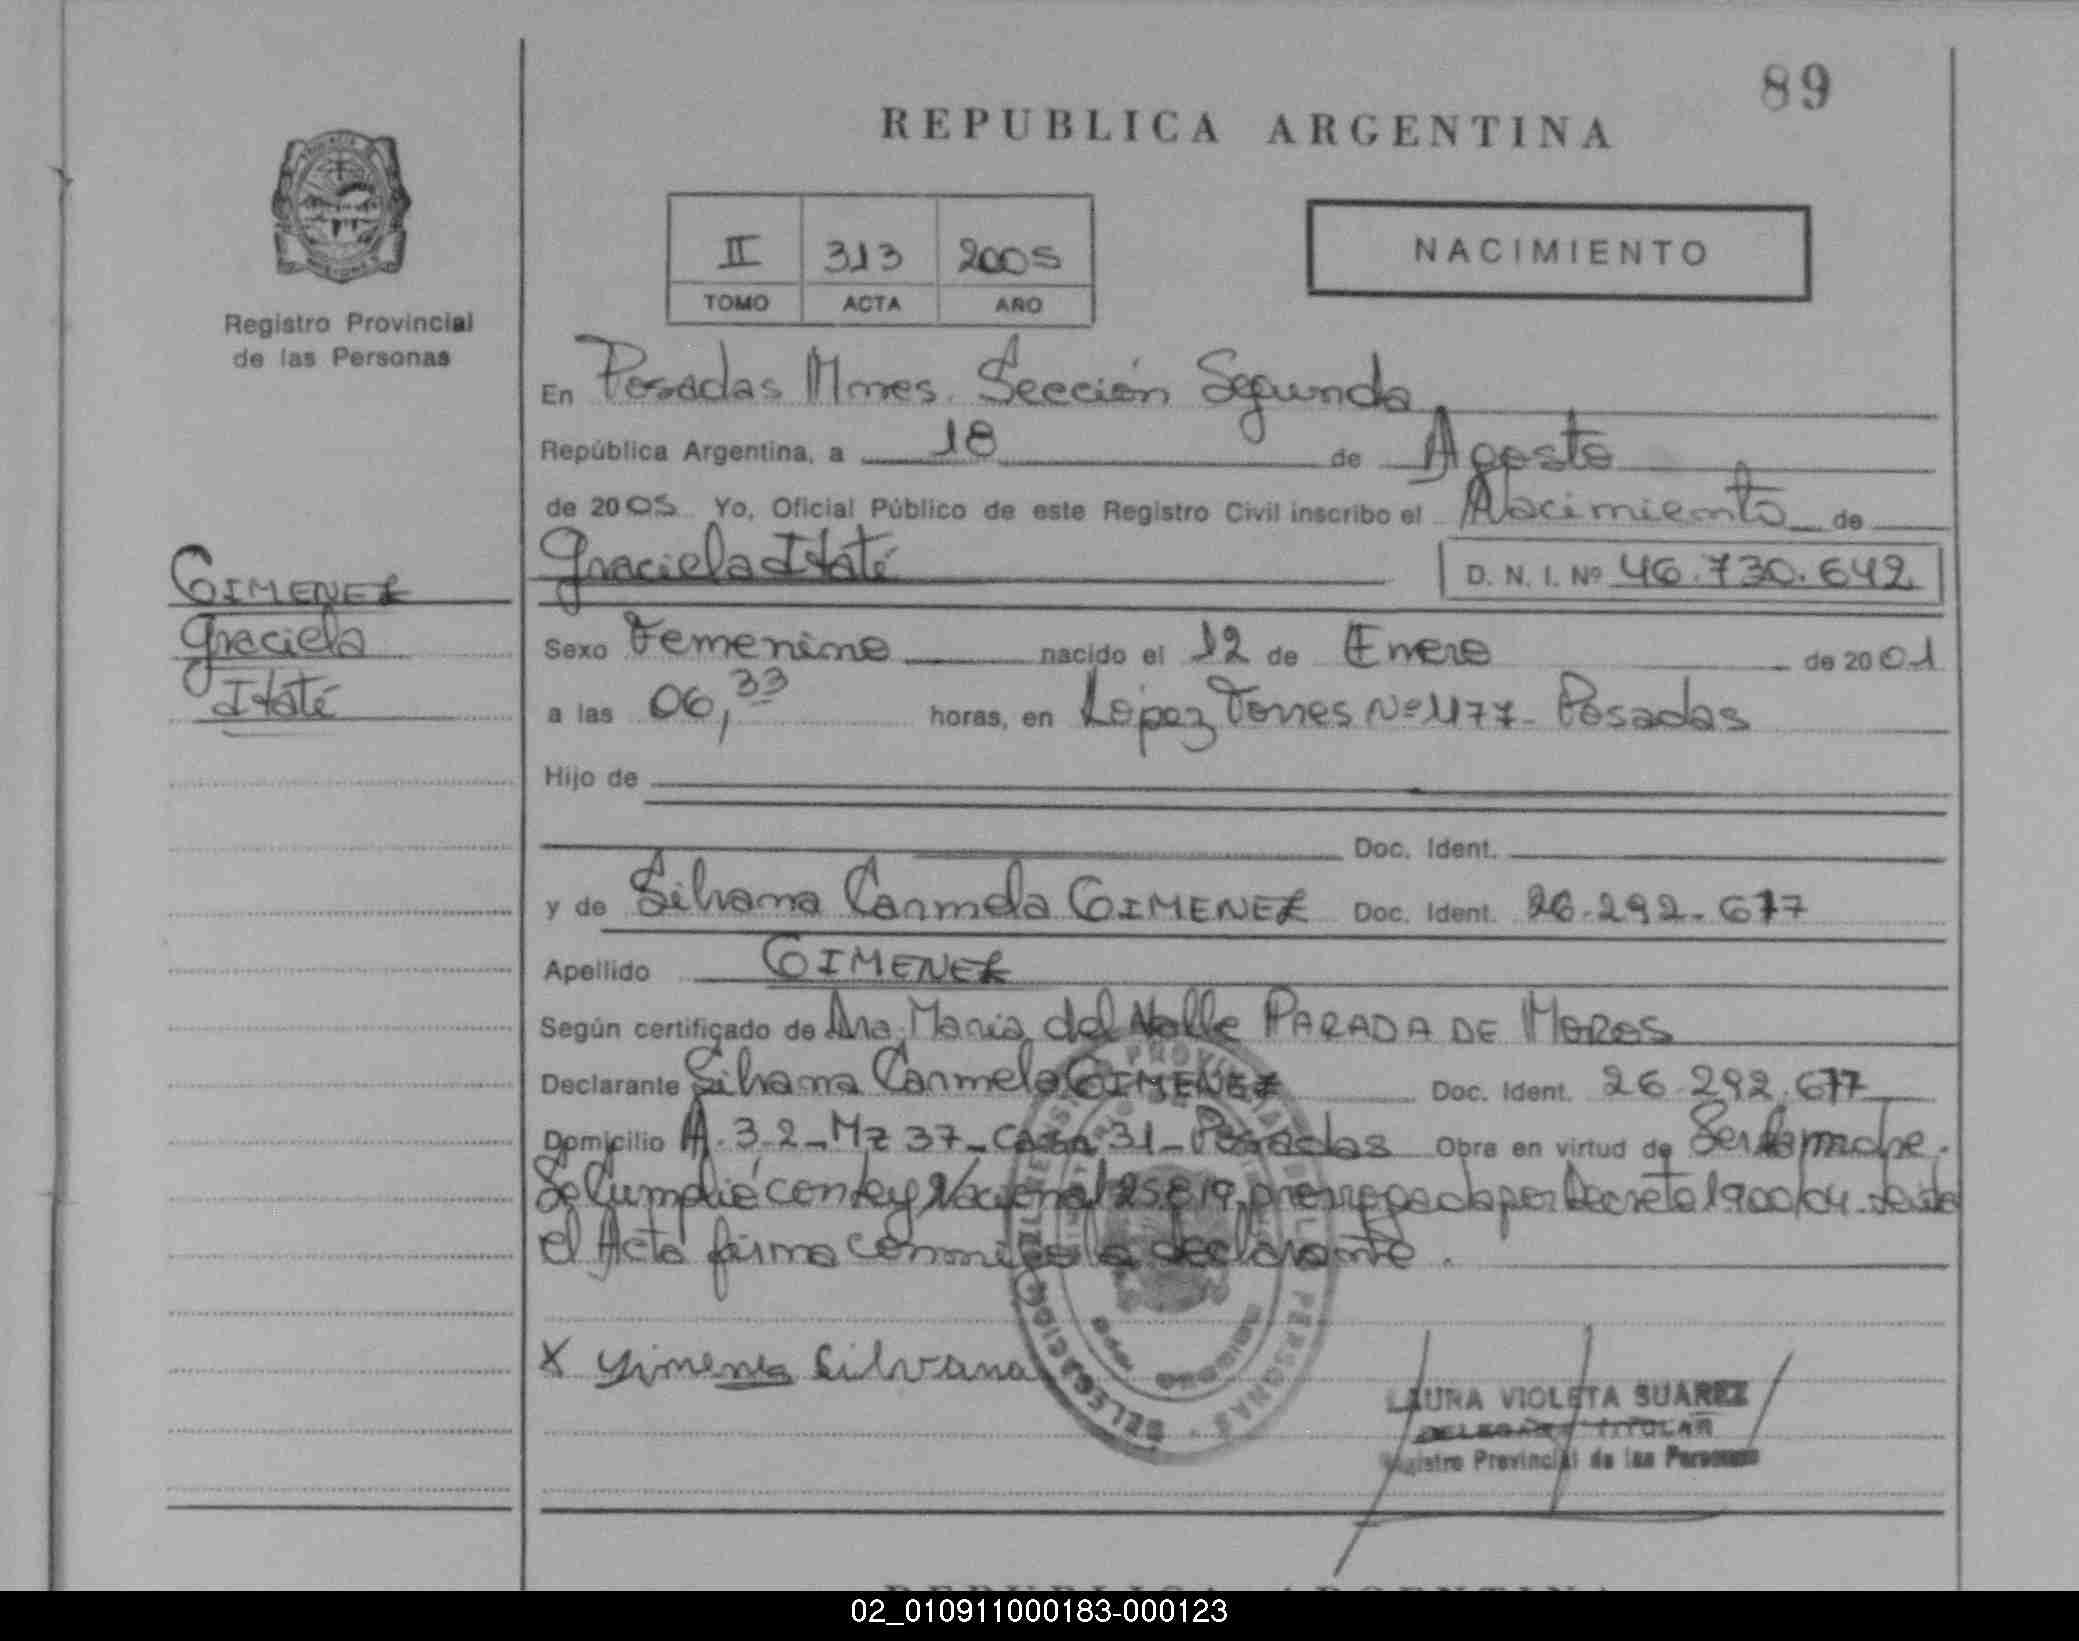 89
REPUBLICA ARGENTINA
II 313 2005
TOMO ACTA AÑO
NACIMIENTO
Registro Provincial
de las Personas
En Posadas Mnes. Sección Segunda
República Argentina, a 18 de Agosto
de 2005 Yo, Oficial Público de este Registro Civil inscribo el Nacimiento de
Graciela Itatí
D. N. I. Nº 46.730.642
GIMENEZ
Graciela
Itatí
Sexo Femenino nacido el 12 de Enero de 2001
a las 06,33 horas, en López Torres Nº 1177 - Posadas
Hijo de
Doc. Ident.
y de Silvana Carmela GIMENEZ Doc. Ident. 26.292.677
Apellido GIMENEZ
Según certificado de Dra. María del Valle PARADA DE MOROS
Declarante Silvana Carmela GIMENEZ Doc. Ident. 26.292.677
Domicilio A. 3-2 - Mz 37 - Casa 31 - Posadas Obra en virtud de Ser la madre.
Se Cumplió con Ley Nacional 25.819, prorrogada por Decreto 1900/04. Leída
el Acta firma conmigo la declarante.
X Gimenez Silvana
LAURA VIOLETA SUAREZ
DELEGADA TITULAR
Registro Provincial de las Personas
REPUBLICA ARGENTINA
02_010911000183-000123